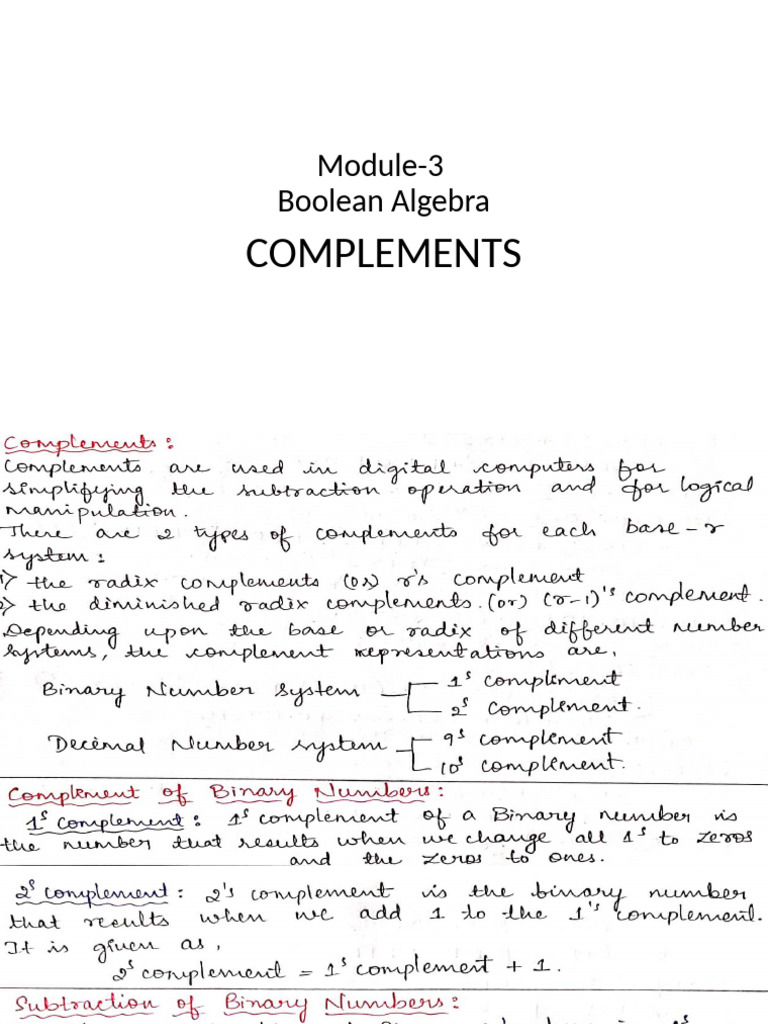 Module-3
Boolean Algebra
COMPLEMENTS
Complements:
Complements are used in digital computers for
simplifying the subtraction operation and for logical
manipulation.
There are 2 types of complements for each base-r
system:
1) the radix complements (or) r's complement
2) the diminished radix complements. (or) (r-1)'s complement.
Depending upon the base or radix of different number
systems, the complement representations are,
Binary Number system 1s complement
2s complement.
Decimal Number system 9s complement
10s complement.
Complement of Binary Numbers:
1s complement: 1s complement of a Binary number is
the number that results when we change all 1s to zeros
and the zeros to ones.
2s complement: 2's complement is the binary number
that results when we add 1 to the 1's complement.
It is given as,
2s complement = 1s complement + 1.
Subtraction of Binary Numbers: